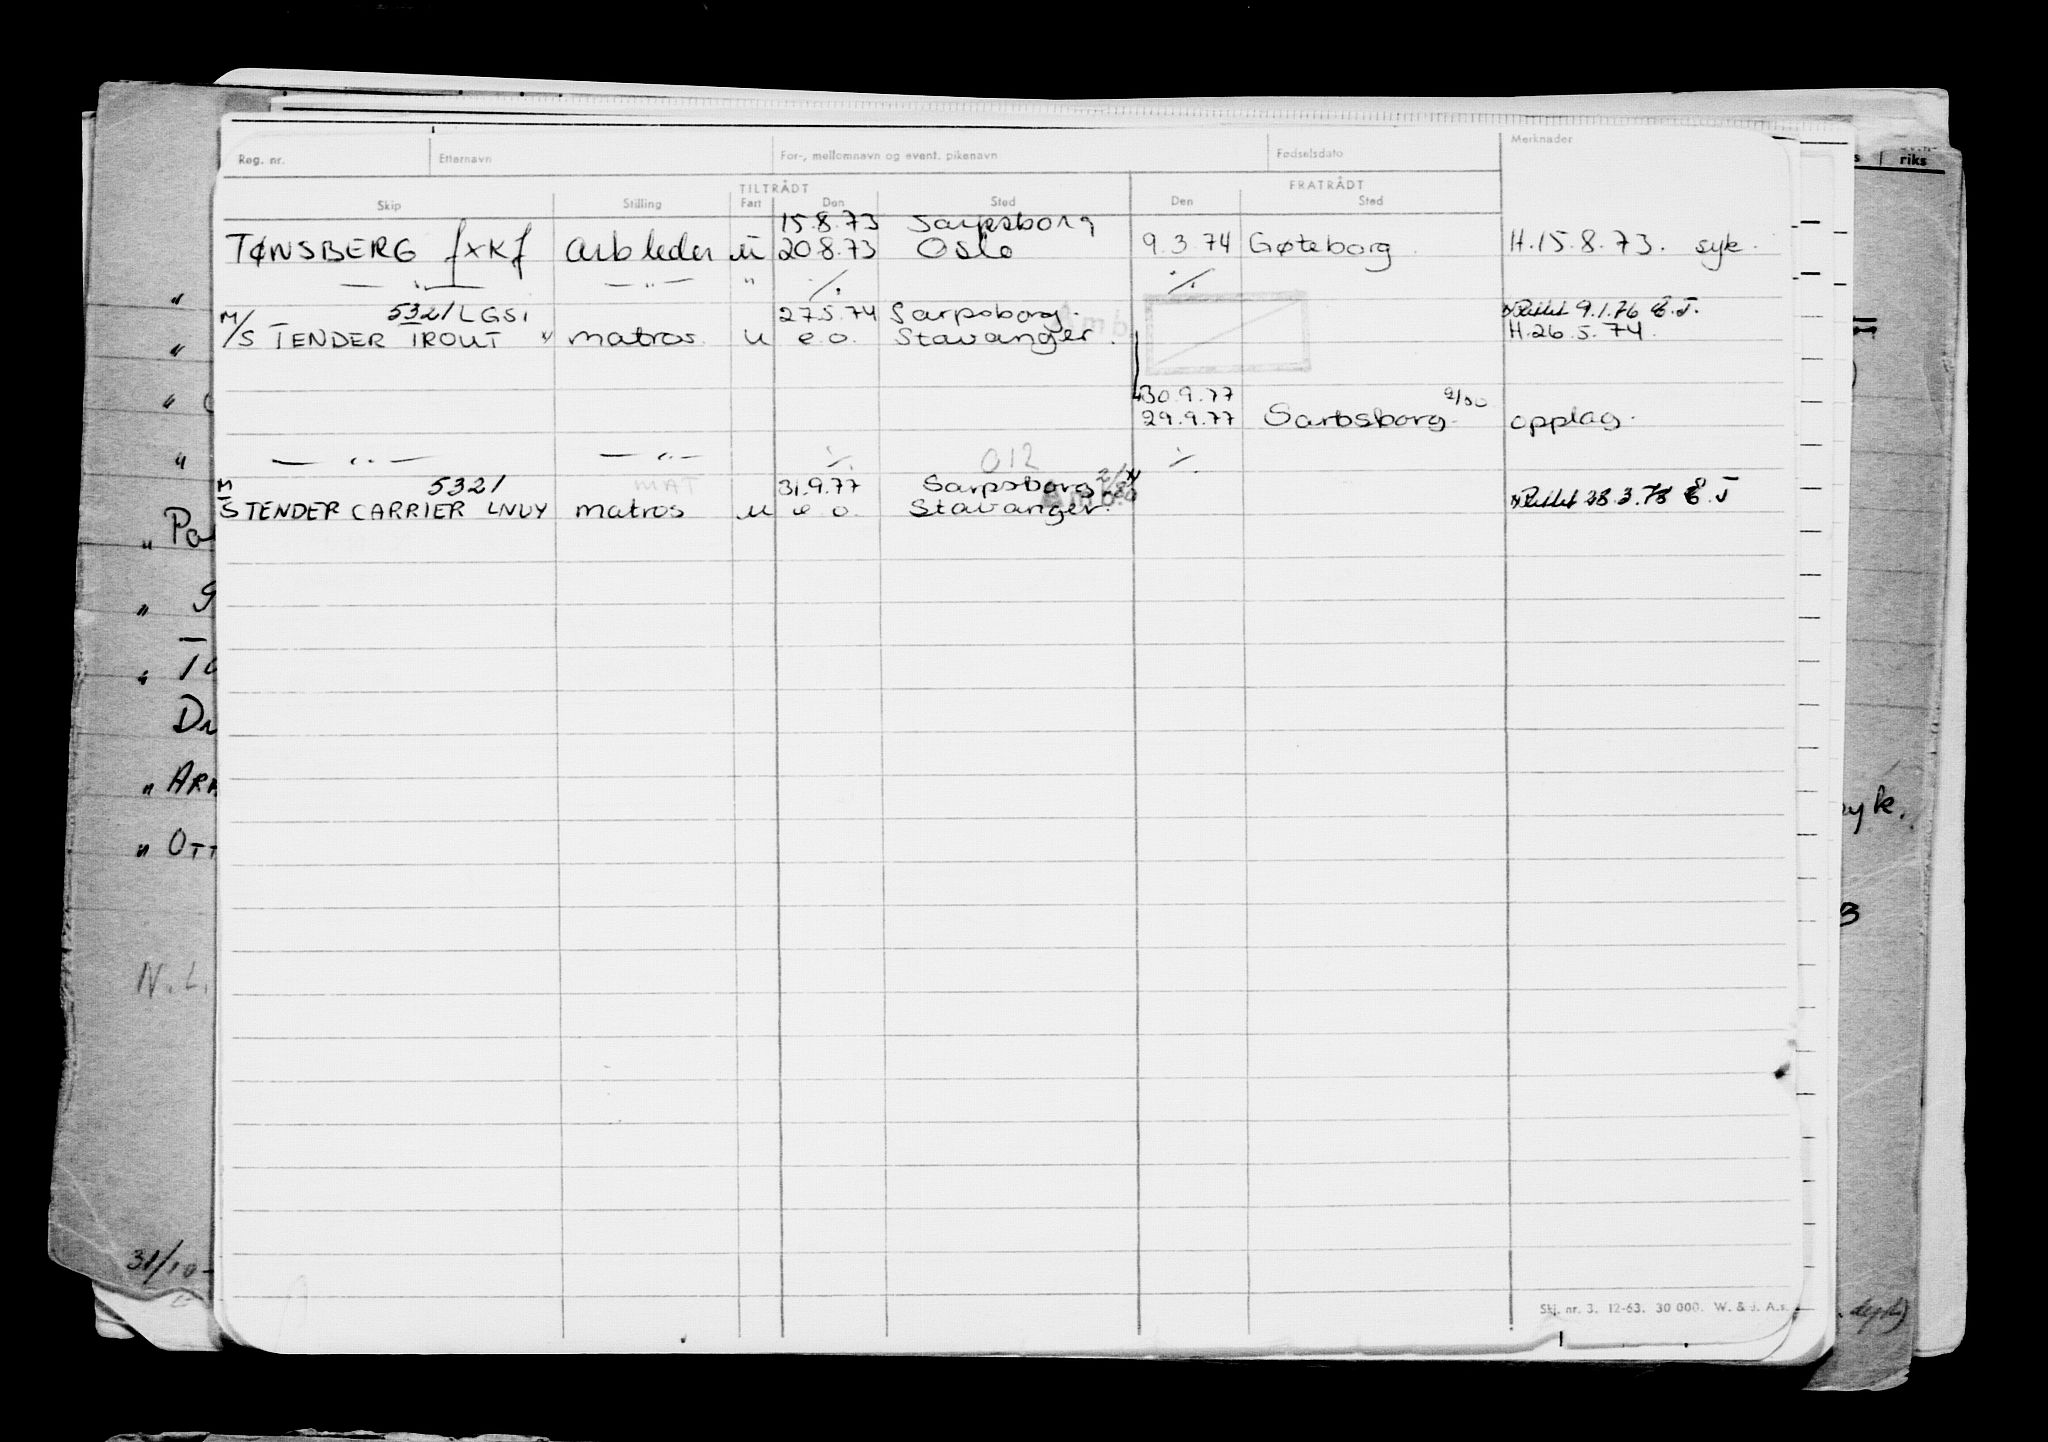 Reg. nr. Etternavn For-, mellomnavn og event. pikenavn Fødselsdato Merknader
TILTRÅDT FRATRÅDT
Skip Stilling Fart Den Sted Den Sted
15.8.73 Sarpsborg
TØNSBERG arb leder u 20.8.73 Oslo 9.3.74 Gøteborg. H.15.8.73. syk.
— " — — " — " ./. ./.
5321 LGSI 27.5.74 Sarpsborg. 9.1.76 E.J.
M/S TENDER TROUT " matros. u e.o. Stavanger. H.26.5.74.
30.9.77
29.9.77 Sarbsborg. opplag.
— " — — " — ./. 012 ./.
5321 MAT 31.9.77 Sarpsborg
M/S TENDER CARRIER LNUY matros u e.o. Stavanger. 28.3.78 E.J
Skj. nr. 3. 12-63. 30 000. W. & J. A.s.
riks
N.L.
31/10-